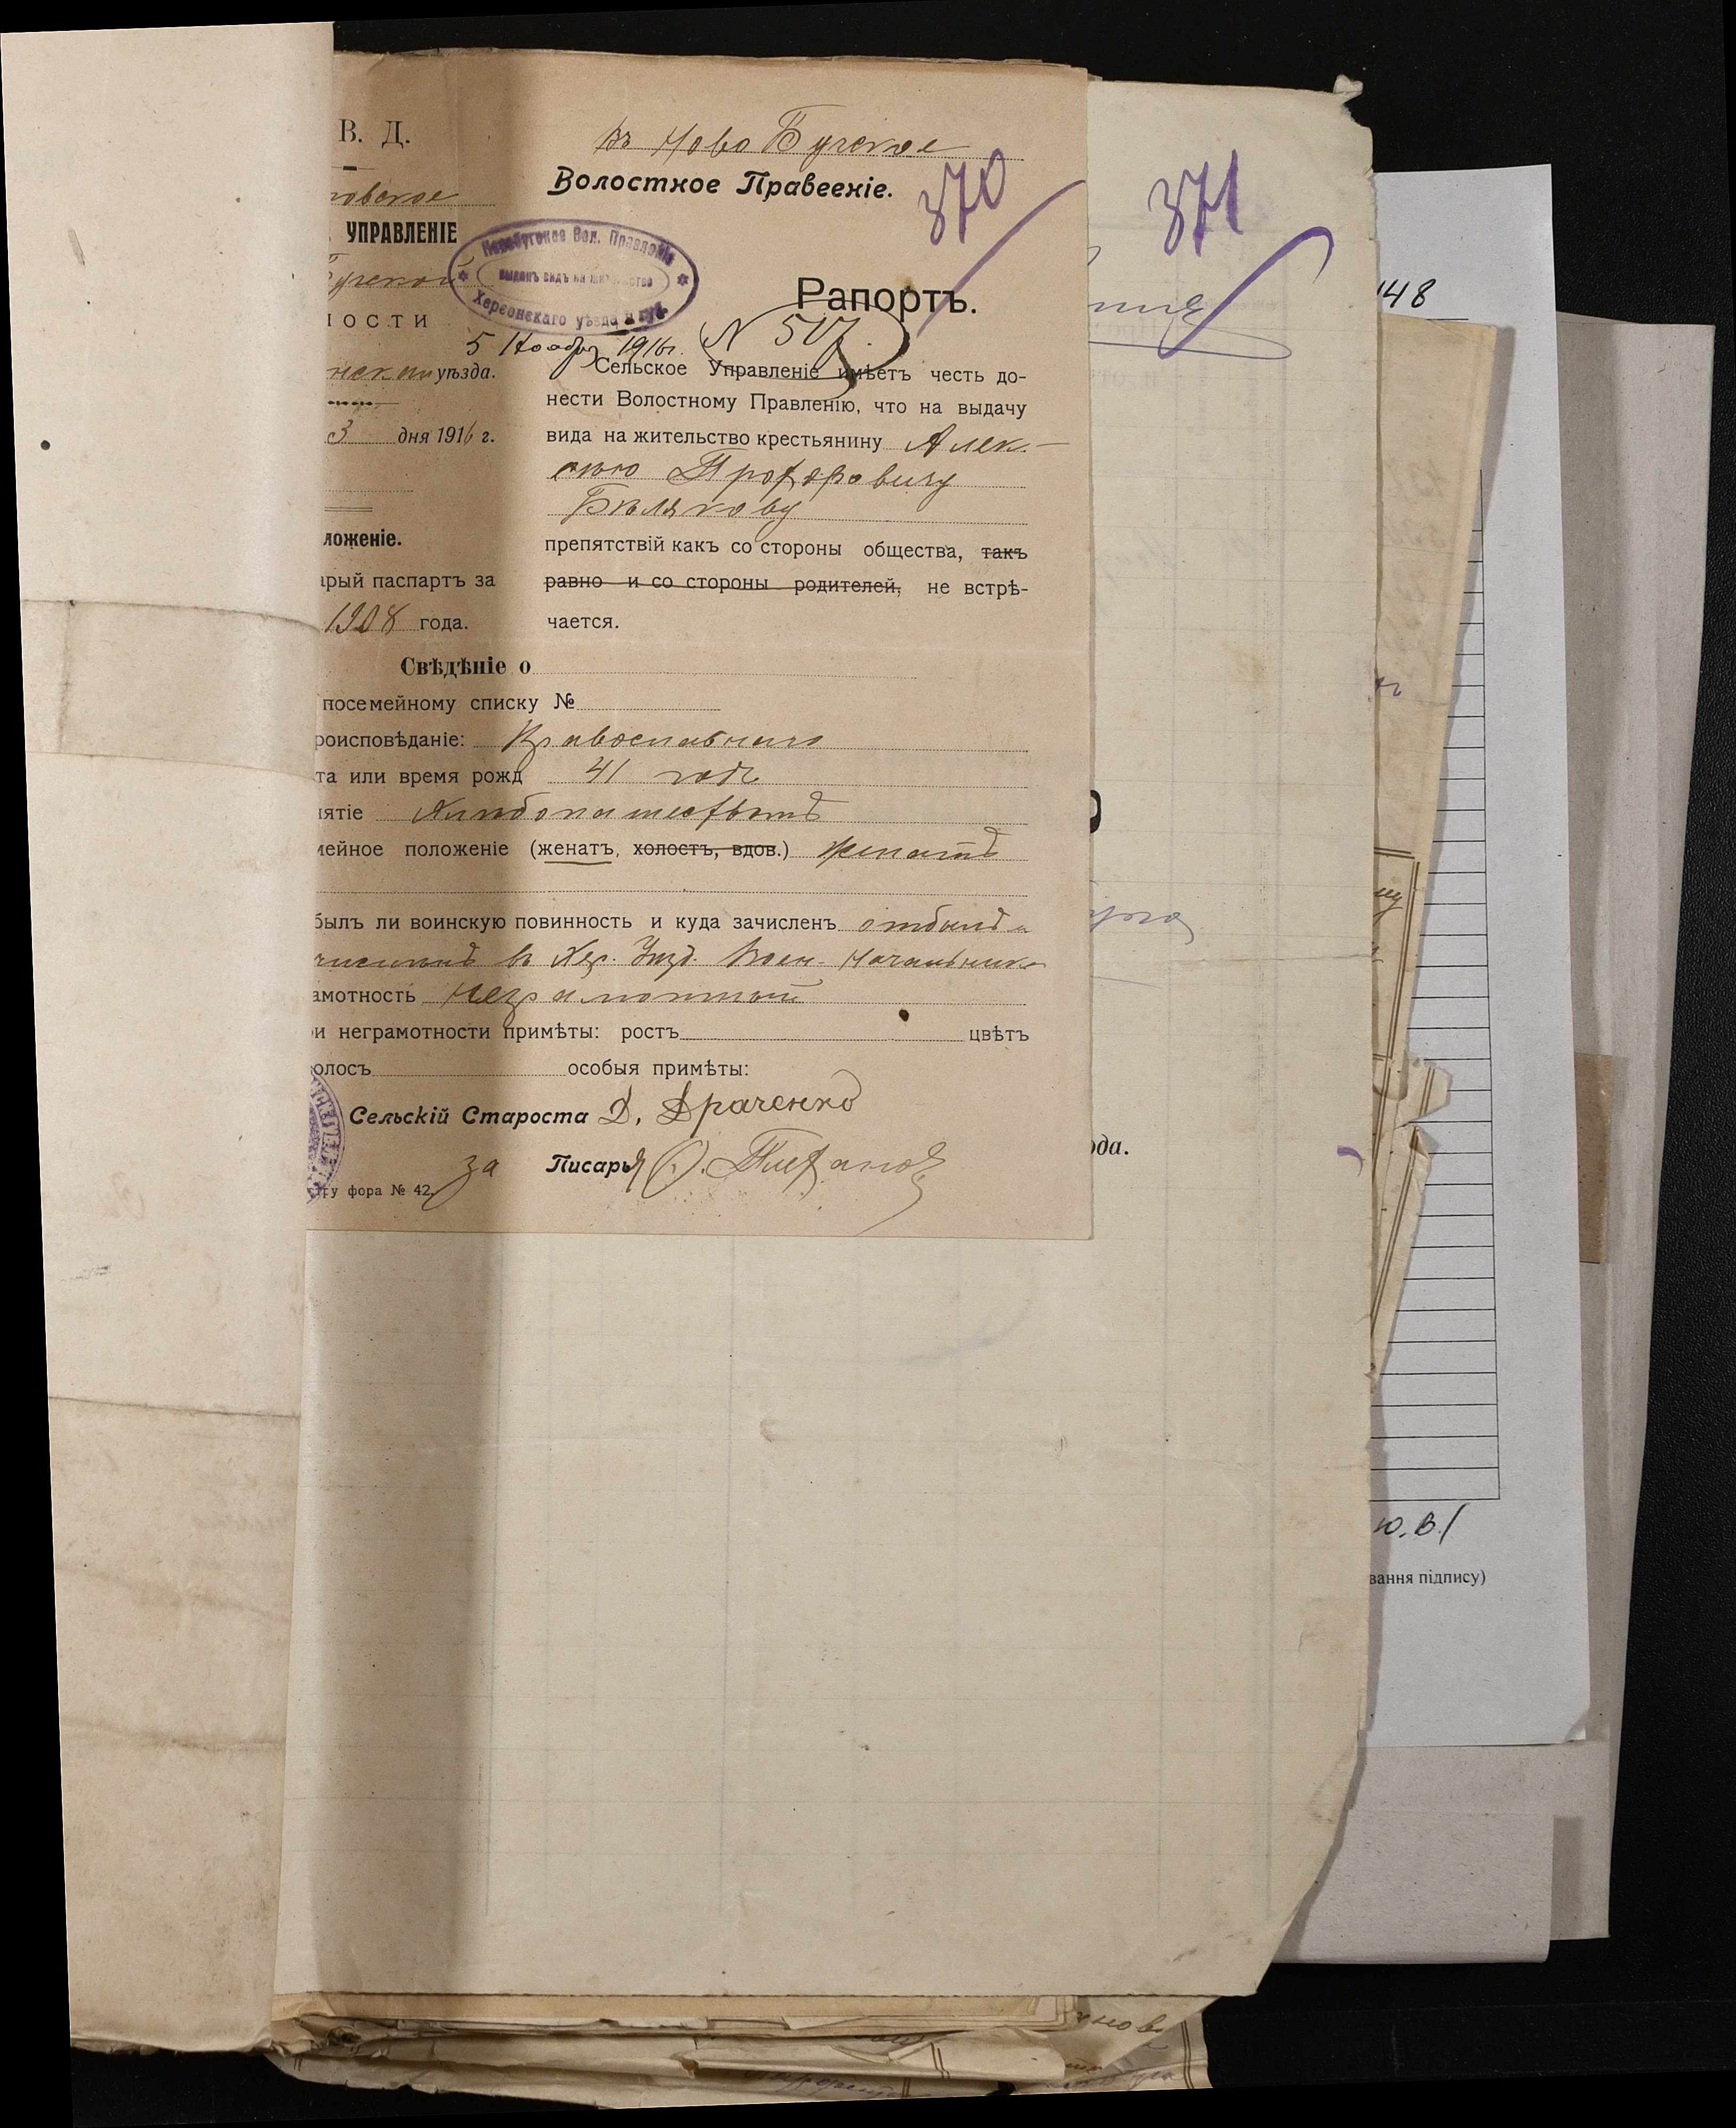 В. Д.
УПРАВЛЕНІЕ
уѣзда.
3 дня 1916 г.
арый паспартъ за
1908 года.
Въ Ново Бугское
Волостное Правееніе.
370
Новобугское Вол. Правленіе
выданъ видъ на жительство
Херсонскаго уѣзда и губ.
5 Ноября 1916г.
N 517
Рапортъ.
Сельское Управленіе имѣетъ честь до-
нести Волостному Правленію, что на выдачу
вида на жительство крестьянину Алек-
сѣю
Бѣлякову
препятствій какъ со стороны общества, такъ
равно и со стороны родителей, не встрѣ-
чается.
Свѣдѣніе о
посемейному списку №
роисповѣданіе: Православнаго
та или время рожд 41 годъ
ятіе Хлѣбопашествомъ
мейное положеніе (женатъ, холостъ, вдов.) женатъ
былъ ли воинскую повинность и куда зачисленъ отбылъ и
въ Хер. Уѣзд. Воен. Начальника
амотность Неграмотный
и неграмотности примѣты: ростъ цвѣтъ
олосъ особыя примѣты:
Сельскій Староста Д. Драченко
за Писарь
фора № 42.
371
148
ода.
ю.в./
вання підпису)